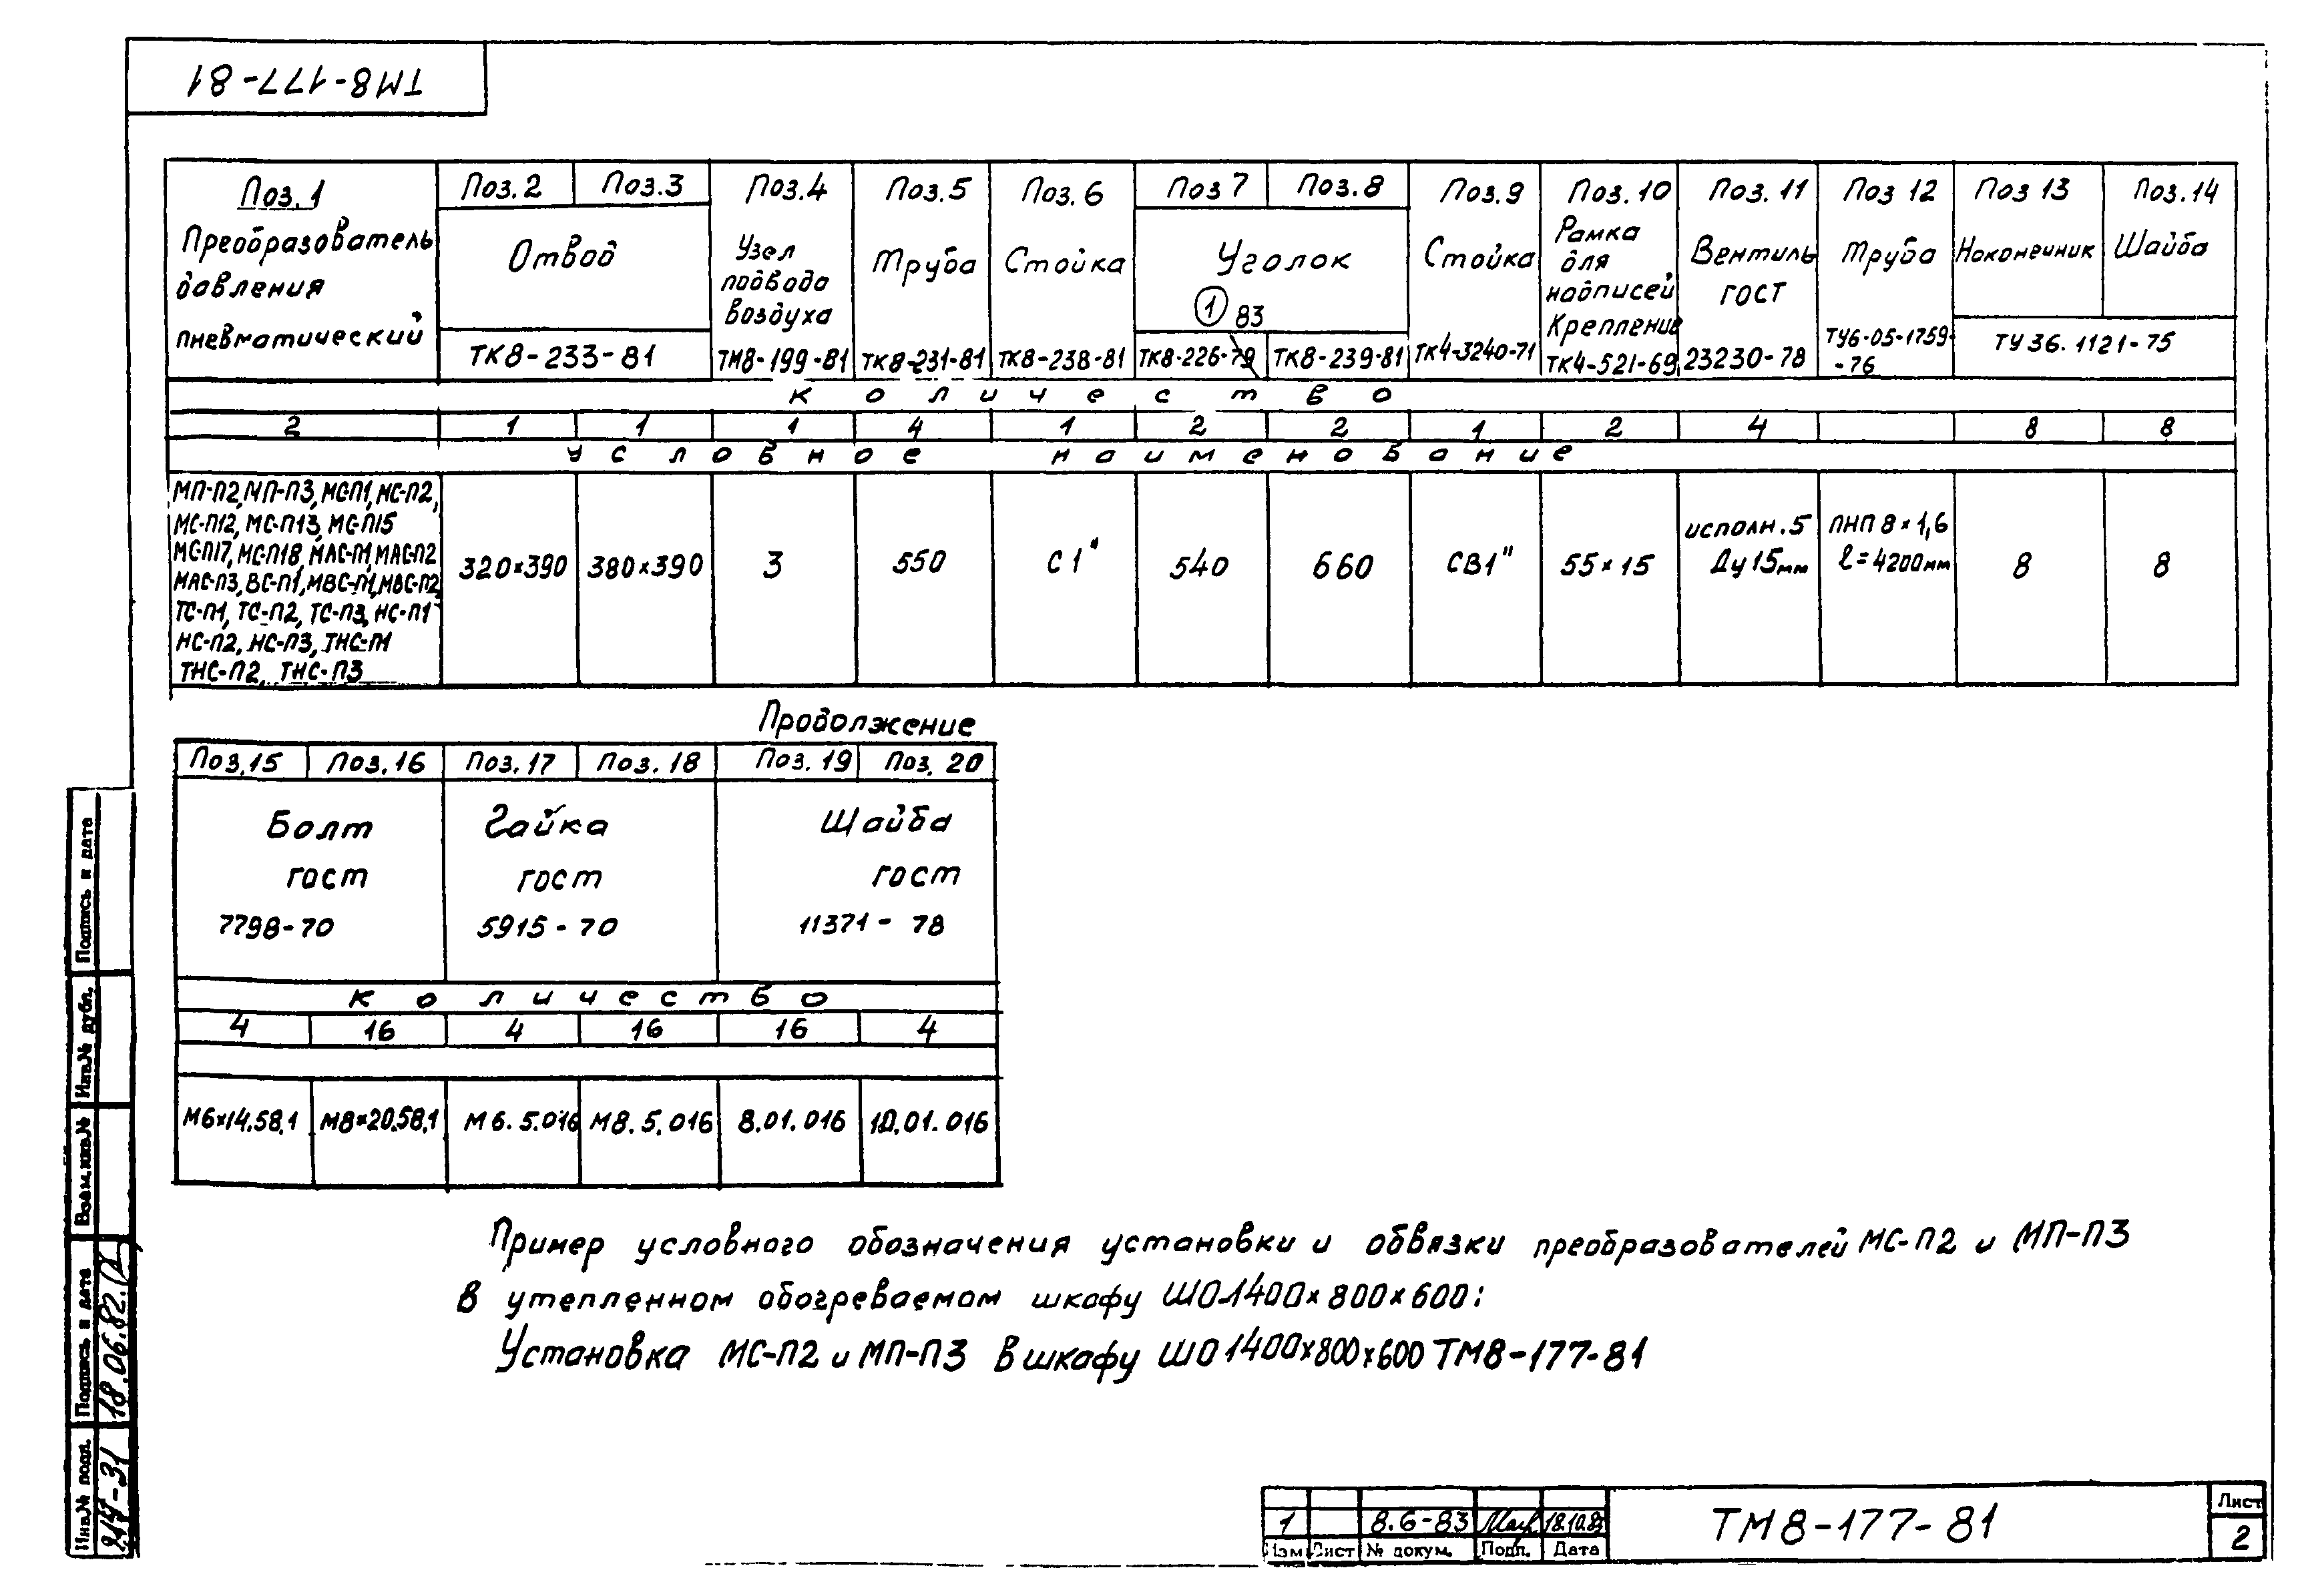 ТМ8-177-81
Поз.1 Поз.2 Поз.3 Поз.4 Поз.5 Поз.6 Поз 7 Поз.8 Поз.9 Поз.10 Поз.11 Поз 12 Поз 13 Поз.14
Преобразователь давления пневматический
Отвод
ТК8-233-81
Узел подвода воздуха
ТМ8-199-81
Труба
ТК8-231-81
Стойка
ТК8-238-81
Уголок
1 83
ТК8-226-79 ТК8-239-81
Стойка
ТК4-3240-71
Рамка для надписей
Крепление
ТК4-521-69
Вентиль
ГОСТ
23230-78
Труба
ТУ6-05-1759-
-76
Наконечник Шайба
ТУ36.1121-75
Количество
2 1 1 1 4 1 2 2 1 2 4 8 8
Условное наименование
МП-П2, МП-П3, МС-П1, МС-П2,
МС-П12, МС-П13, МС-П15
МС-П17, МС-П18, МАС-П1, МАС-П2
МАС-П3, ВС-П1, МВС-П1, МВС-П2,
ТС-П1, ТС-П2, ТС-П3, НС-П1
НС-П2, НС-П3, ТНС-П1
ТНС-П2, ТНС-П3
320×390 380×390 3 550 С1" 540 660 СВ1" 55×15
исполн.5
Ду15мм
ПНП 8×1,6
ℓ=4200мм
8 8
Продолжение
Поз.15 Поз.16 Поз.17 Поз.18 Поз.19 Поз.20
Болт Гайка Шайба
гост гост гост
7798-70 5915-70 11371-78
Количество
4 16 4 16 16 4
М6×14.58.1 М8×20.58.1 М6.5.016 М8.5.016 8.01.016 10.01.016
Пример условного обозначения установки и обвязки преобразователей МС-П2 и МП-П3
в утепленном обогреваемом шкафу ШО-1400×800×600:
Установка МС-П2 и МП-П3 в шкафу ШО 1400×800×600 ТМ8-177-81
Подпись и дата
Инв.№ дубл.
Взам.инв.№
Подпись и дата
18.06.82
Инв.№ подл.
1 8.6-83
Изм Лист № докум. Подп. Дата
ТМ8-177-81
Лист
2